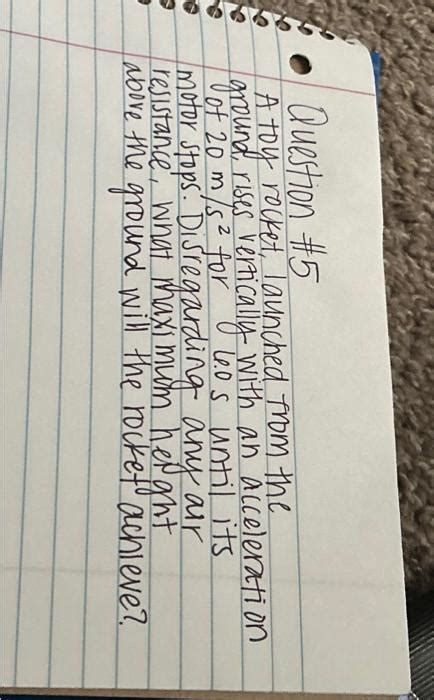 Question #5
A toy rocket, launched from the
ground, rises vertically with an acceleration
of 20 m/s² for 6.0 s until its
motor stops. Disregarding any air
resistance, what maximum height
above the ground will the rocket achieve?